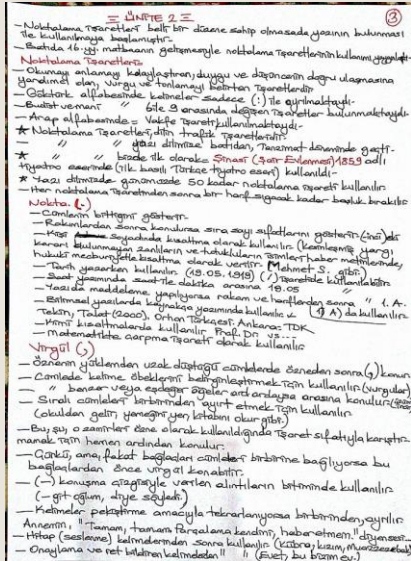 ③
= ÜNİTE 2 =
- Noktalama işaretleri belli bir düzene sahip olmasada yazının bulunması
ile kullanılmaya başlamıştır.
- Batıda 16.yy. matbaanın gelişmesiyle noktalama işaretlerinin kullanımı
Noktalama İşaretleri:
- Okumayı anlamayı kolaylaştıran, duygu ve düşüncenin doğru ulaşmasına
yardımcı olan, vurgu ve tonlamayı belirten işaretlerdir
- Göktürk alfabesinde kelimeler sadece (:) ile ayrılmaktaydı.
- Budist ve mani " 6 ile 9 arasında değişen işaretler bulunmaktaydı
- Arap alfabesinde = Vakfe işareti kullanılmaktaydı
★ Noktalama işaretleri, dilin trafik işaretleridir.
- " " yazı dilimize batıdan, Tanzimat döneminde geçti.
★ " " bizde ilk olarak = Şinasi (Şair Evlenmesi) 1859 adlı
tiyatro eserinde (ilk basılı Türkçe tiyatro eseri) kullanıldı
★ Yazı dilimizde günümüzde 50 kadar noktalama işareti kullanılır
- Her noktalama işaretinden sonra bir harf sığacak kadar boşluk bırakılır
Nokta (.)
- Cümlenin bittiğini gösterir.
- Rakamlardan sonra konulursa sıra sayı sıfatlarını gösterir (inci) eki
- Kişi soyadında kısaltma olarak kullanılır (kesinleşmiş yargı
kararı bulunmayan sanıkların ve tutukluların isimleri haber metinlerinde,
hukuki mecburiyetle kısaltma olarak verilir. Mehmet S. gibi.)
- Tarih yazarken kullanılır. (19.05.1919) (/) işaretide kullanılabilir
- Saat yazımında saat ile dakika arasına 19.05 "
- Yazıda maddeleme yapılıyorsa rakam ve harflerden sonra " 1. A.
- Bilimsel yazılarda kaynakça yazımında kullanılır
Tekin, Talat (2000). Orhon Türkçesi. Ankara: TDK
- Kimi kısaltmalarda kullanılır Prof. Dr. vs...
- Matematikte çarpma işareti olarak kullanılır
Virgül (,)
- Öznenin yüklemden uzak düştüğü cümlelerde özneden sonra (,) konur.
- Cümlede kelime öbeklerini belirginleştirmek için kullanılır (vurgular)
- " benzer veya eşdeğer öğeler art arda ysa arasına konulur
- Sıralı cümleleri birbirinden ayırt etmek için kullanılır
(okuldan gelir, yemeğini yer, kitabını okur gibi.)
- Bu, şu, o zamirleri özne olarak kullanıldığında işaret sıfatıyla karıştır-
mamak için hemen ardından konulur.
- Çünkü, ama, fakat bağlaçları cümleleri birbirine bağlıyorsa bu
bağlaçlardan önce virgül konabilir.
- (-) konuşma çizgisiyle verilen alıntıların bitiminde kullanılır
(- git oğlum, diye söyledi.)
- Kelimeler pekiştirme amacıyla tekrarlanıyorsa birbirinden ayrılır
Annemin, "Tamam, tamam parçalama kendini, haber etmem."
- Hitap (seslenme) kelimelerinden sonra kullanılır (Kübra, kızım,
- Onaylama ve ret bildiren kelimelerden " " (Evet, bu bizim ev.)